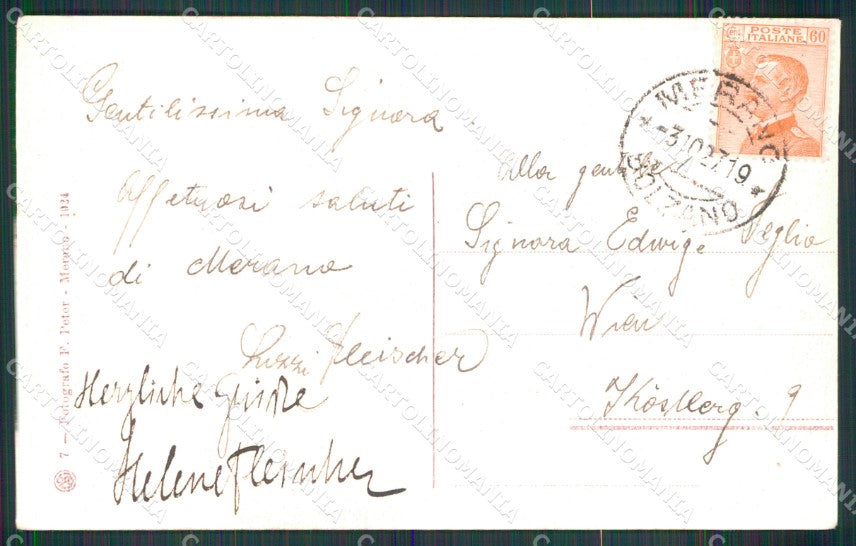 Gentilissima Signora
Affetuosi saluti
di Merano
Luzzi Fleischer
Herzliche Grüße
Helene Fleischer
7 — Fotografo F. Peter - Merano - 1924
POSTE
ITALIANE
60
MERANO
-3.10.27.19
BOLZANO
Alla gentile
Signora Edwige Veglio
Wien
9
CARTOLINOMANIA